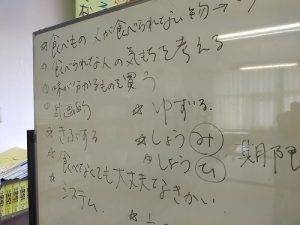 ☆食べもの 人が食べられてない物→
☆食べられてな人の気もちを考える
味が分かるものを買う
計画的
☆ゆずる。
☆きふする
☆しょうみ
☆しょうひ
期限
☆食べなくても大丈夫なきかい
システム